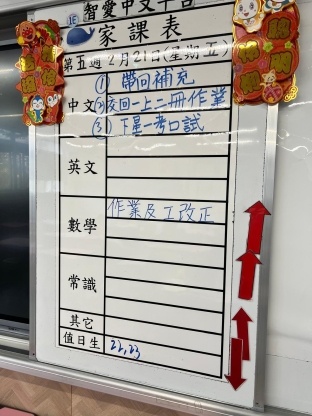 1E
智愛中文平台
家課表
第五週 2月21日(星期五)
中文
① 帶回補充
② 交回一上二冊作業
③ 下星一考口試
英文
數學
作業及工改正
常識
其它
值日生
22,23